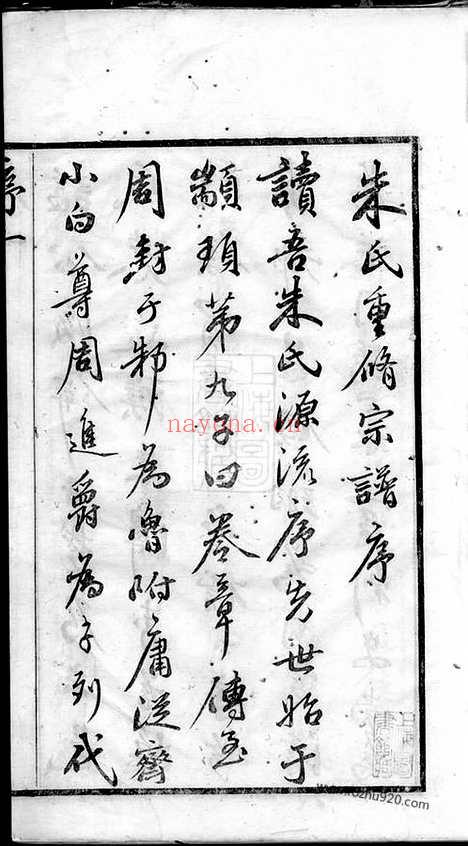 朱氏重脩宗譜序
讀吾朱氏源流序先世始于
顓頊第九子曰卷章傳至
周封于邾為魯附庸從齊
小白尊周進爵為子列代
序一
nayona.cn